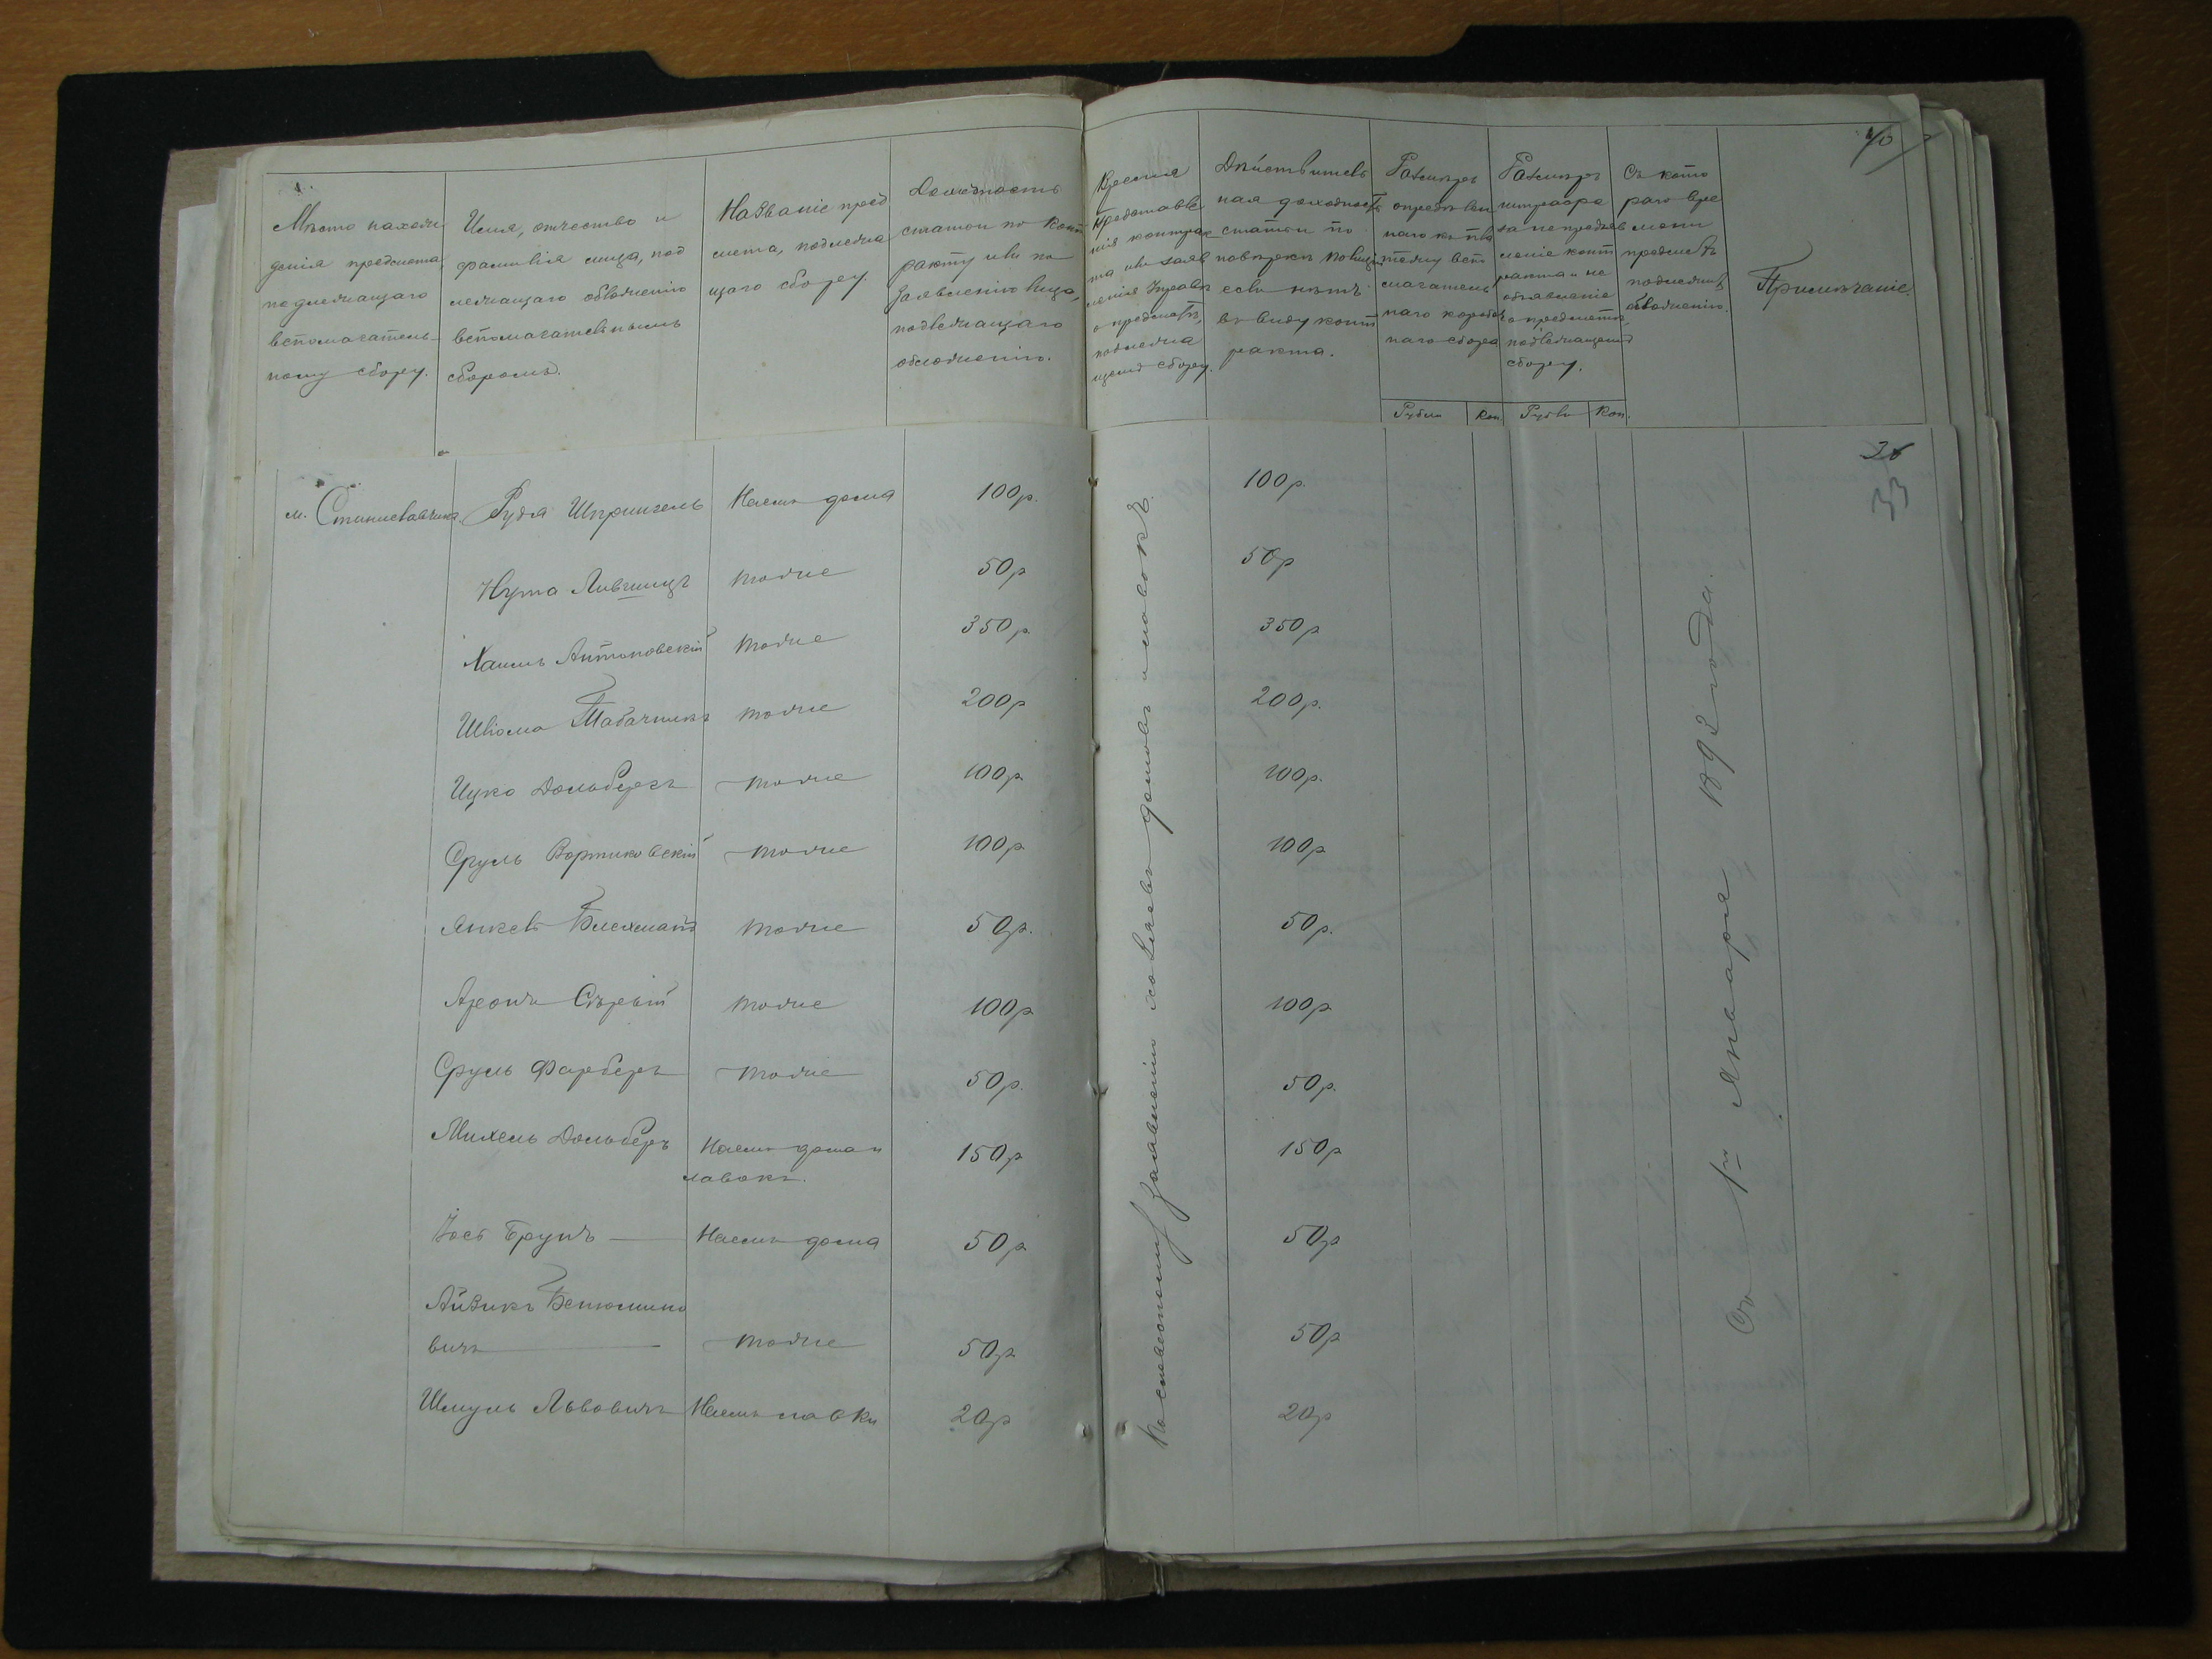 40
Мѣсто нахож
денія предмета,
подлежащаго
вспомогатель
ному сбору.
Имя, отчество и
фамилія лица, под
лежащаго обложенію
вспомогательнымъ
сборомъ.
Названіе пред
мета, подлежа
щаго сбору.
Доходность
статьи по конт
ракту или по
заявленію лица,
подлежащаго
обложенію.
Время
представле
нія контрак
та или заяв
ленія Управѣ
о предметѣ,
подлежа
щемъ сбору.
Дѣйствитель
ная доходность
статьи по
повѣркѣ полиціи
если нѣтъ
въ виду конт
ракта.
Размѣръ
опредѣлен
наго къ пла
тежу вспо
магатель
наго коробоч
наго сбора
Рубли
Коп.
Размѣръ
штрафа
за непредъяв
леніе конт
ракта и не
объявленіе
о предметѣ,
подлежащемъ
сбору.
Рубли
Коп.
Съ кото
раго вре
мени
предметъ
подлежитъ
обложенію.
Примѣчаніе.
36
33
м. Станиславчикъ
Рудя Шпригель Наемъ дома 100р. 100р.
Нута Лившицъ тоже 50р 50р
Хаимъ Антоновскій тоже 350р. 350р
Шліома Табачникъ тоже 200р 200р.
Ицко Дольбергъ тоже 100р. 100р.
Сруль Вортиковскій тоже 100р 100р
Янкель Блехманъ тоже 50р. 50р.
Аронъ Сѣрый тоже 100р 100р
Сруль Фарберъ тоже 50р. 50р.
Михель Дольберъ Наемъ дома и
лавокъ. 150р 150р
Іось Брунъ Наемъ дома 50р 50р
Айзикъ Бенюмино
вичъ тоже 50р 50р
Шмуль Львовичъ Наемъ лавки 20р 20р
заявленію хозяевъ домовъ и лавокъ.
Съ 1го Января 1892 года.